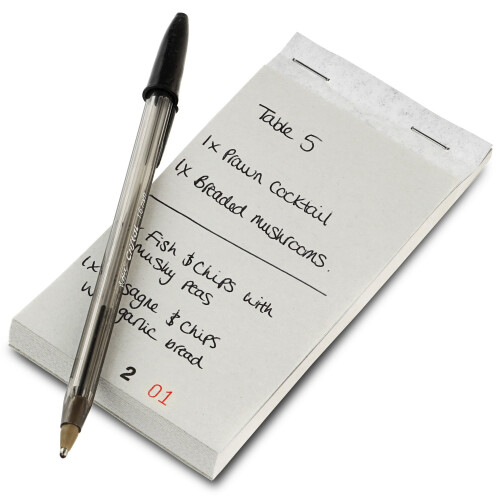 Table 5
1x Prawn Cocktail
1x Breaded mushrooms.
Fish & Chips with
mushy peas
1x Lasagne & Chips
garlic bread
2
01